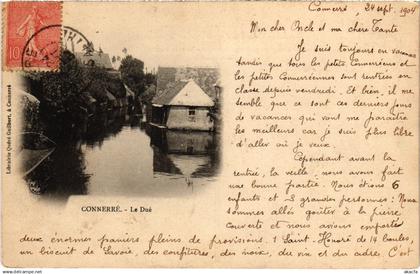 Connerré, 24 sept. 1904
Mon cher Oncle et ma chère Tante
Je suis toujours en vacances
tandis que tous les petits Connerréens et
les petites Connerréennes sont rentrés en
classe depuis vendredi. Et bien, il me
semble que ce sont ces derniers jours
de vacances qui vont me paraître
les meilleurs car je suis plus libre
d'aller où je veux.
Cependant avant la
rentrée, la veille nous avons fait
une bonne partie. Nous étions 6
enfants et 3 grandes personnes : Nous
sommes allés goûter à la pierre
couverte et nous avions emporté
deux énormes paniers pleins de provisions. 1 Saint-Honoré de 14 boules,
un biscuit de Savoie, des confitures, des noix, du vin et du cidre. C'é
Librairie Oudré-Guilbert, à Connerré
CONNERRÉ. - Le Dué
10